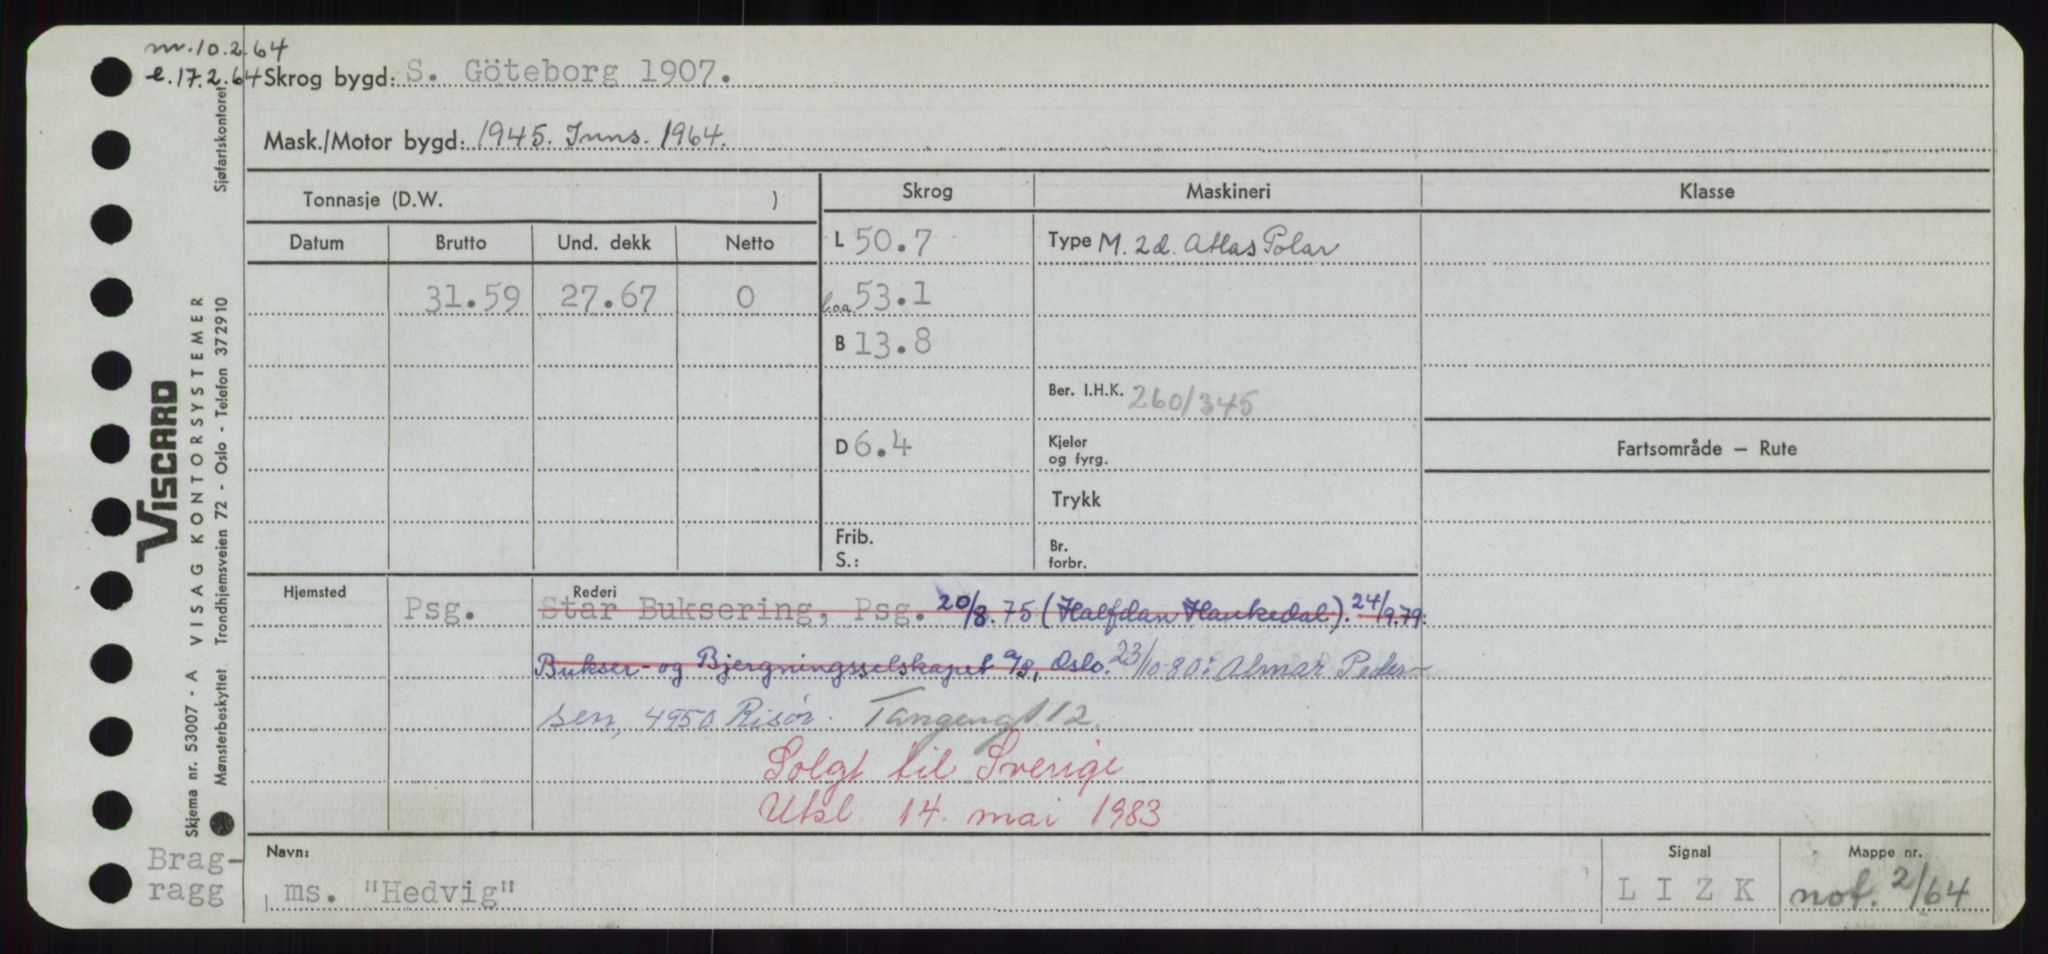 m. 10.2.64
e. 17.2.64 Skrog bygd: S. Göteborg 1907.
Mask./Motor bygd: 1945. Inns. 1964.
Tonnasje (D.W. )
Skrog
Maskineri
Klasse
Datum Brutto Und. dekk Netto
L 50.7
Type M. 2d. Atlas Polar
31.59 27.67 0
l.o.a. 53.1
B 13.8
Ber. I.H.K. 260/345
D 6.4
Kjeler
og fyrg.
Fartsområde — Rute
Trykk
Frib.
S.:
Br.
forbr.
Hjemsted
Rederi
Psg. Star Buksering, Psg. 20/8.75 (Halfdan Haukedal). 24/9.79:
Bukser- og Bjergningsselskapet a/s, Oslo. 23/10 80: Almar Peder-
sen, 4950 Risør. Tangengt. 12.
Solgt til Sverige
Utsl 14. mai 1983
Brag-
ragg
Navn:
ms. "Hedvig"
Signal
L I Z K
Mappe nr.
not. 2/64
VISCARD
Skjema nr. 53007 - A VISAG KONTORSYSTEMER
Mønsterbeskyttet Trondhjemsveien 72 - Oslo - Telefon 372910
Sjøfartskontoret